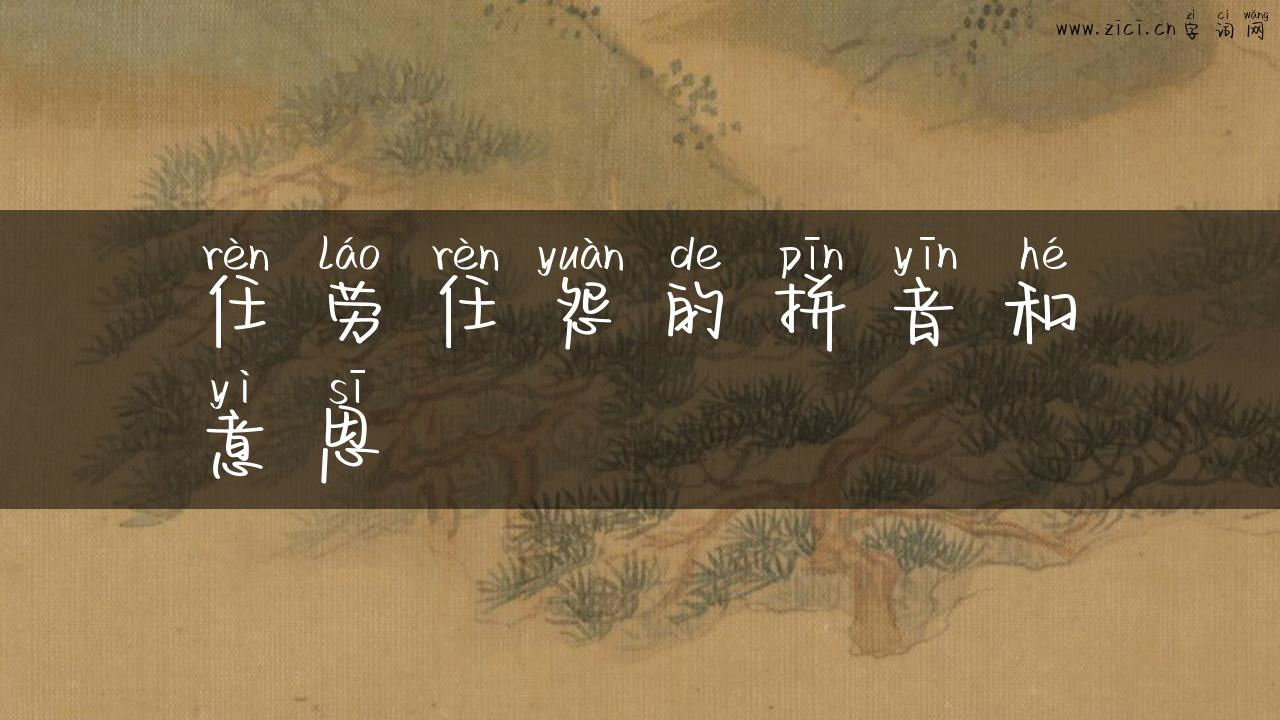 zì cí wǎng
www.zici.cn 字 词 网
rèn láo rèn yuàn de pīn yīn hé
任 劳 任 怨 的 拼 音 和
yì sī
意 思